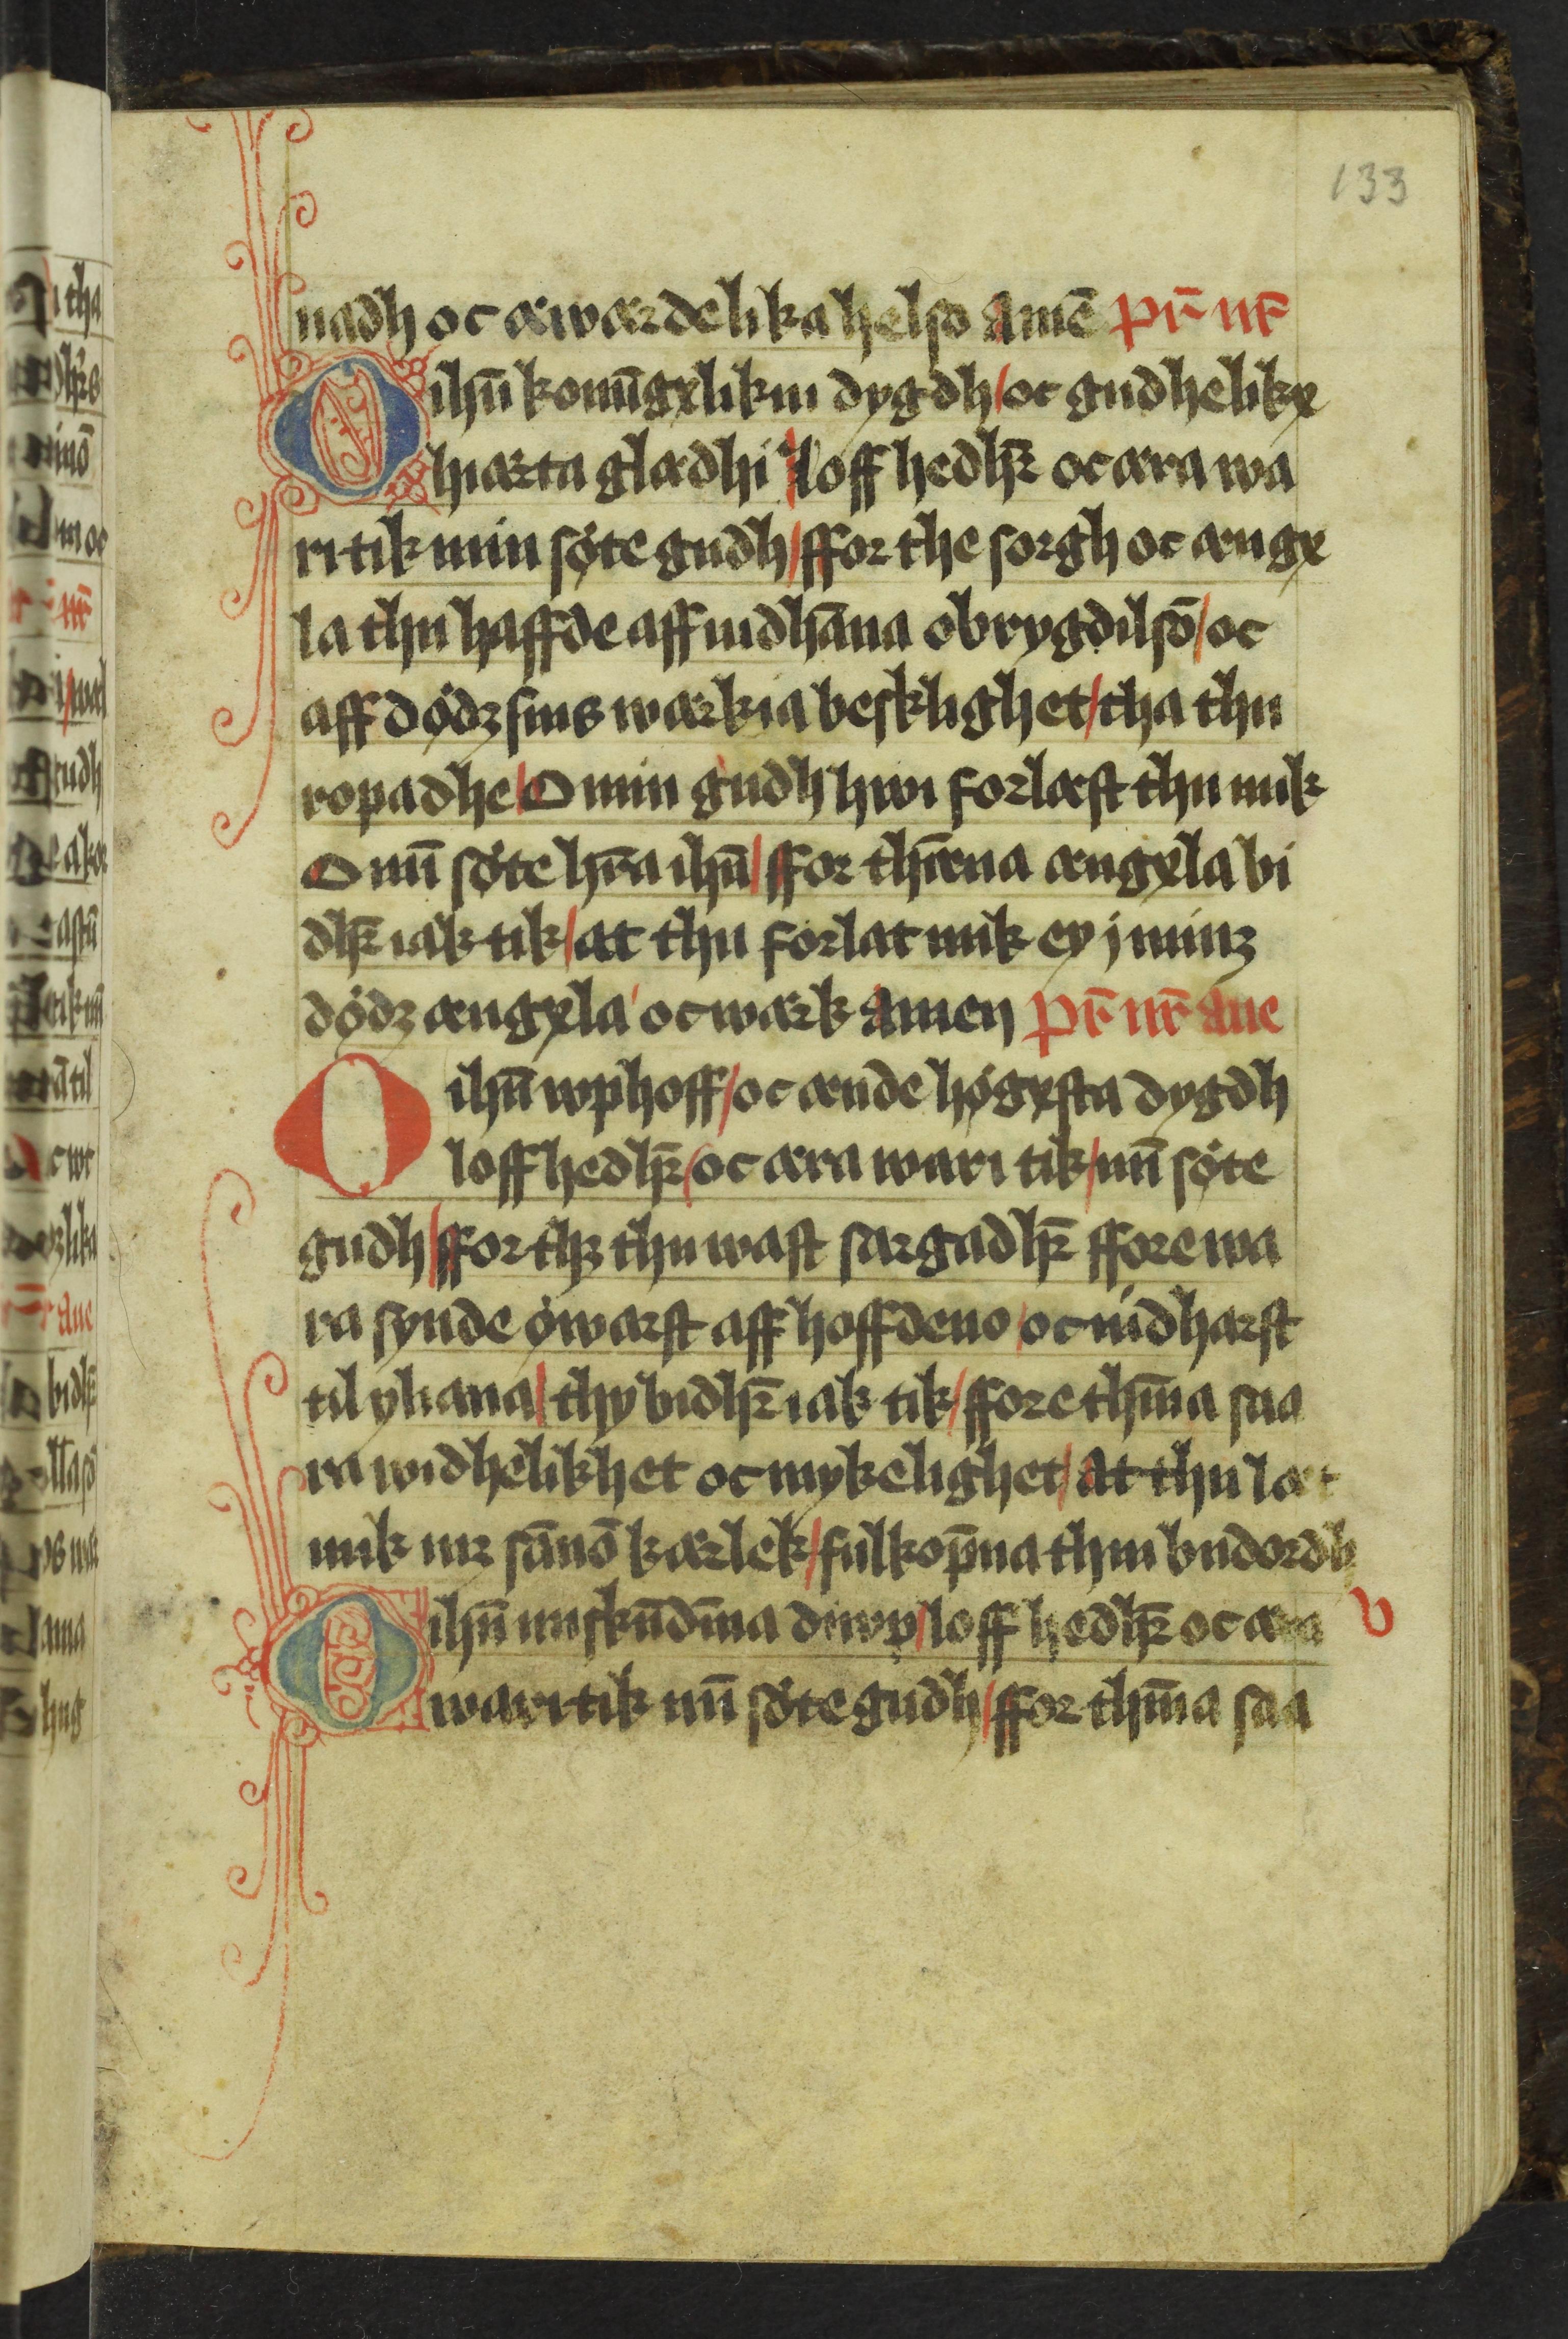 133
nadh oc æwærdelika helso Amē pr̄ nr̄
O ihū konūgxlikin dygdh / oc gudhelikx
hiærta glædhi / loff hedhr̄ oc æra wa
ri tik min söte gudh / ffor the sorgh oc ængx
la thu haffde aff iudhāna obrygdilsō / oc
aff dödz sins wærkia besklighet / tha thu
ropadhe / O min gudh hwi forlæst thu mik
O mī söte hr̄ra ihū / ffor thænna ængxla bi
dhr̄ iak tik / at thu forlat mik ey j minz
dödz ængxla oc wærk Amen pr̄ nr̄ Aue
O ihū wphoff / oc ænde högxsta dygdh
loff hedhr̄ / oc æra wari tik / mī söte
gudh / ffor thz thu wast sargadhr̄ ffore wa
ra synde öwarst aff hoffdeno / oc nidharst
til yliana / thy bidhr̄ iak tik / ffore thīna saa
ra widhelikhet oc mykelighet / At thu læt
mik mz sānō kærlek / fulkōpna thin budordh
O ihū miskūdīna diwp / loff hedhr̄ oc æra
b
wari tik mī söte gudh / ffor thīna saa